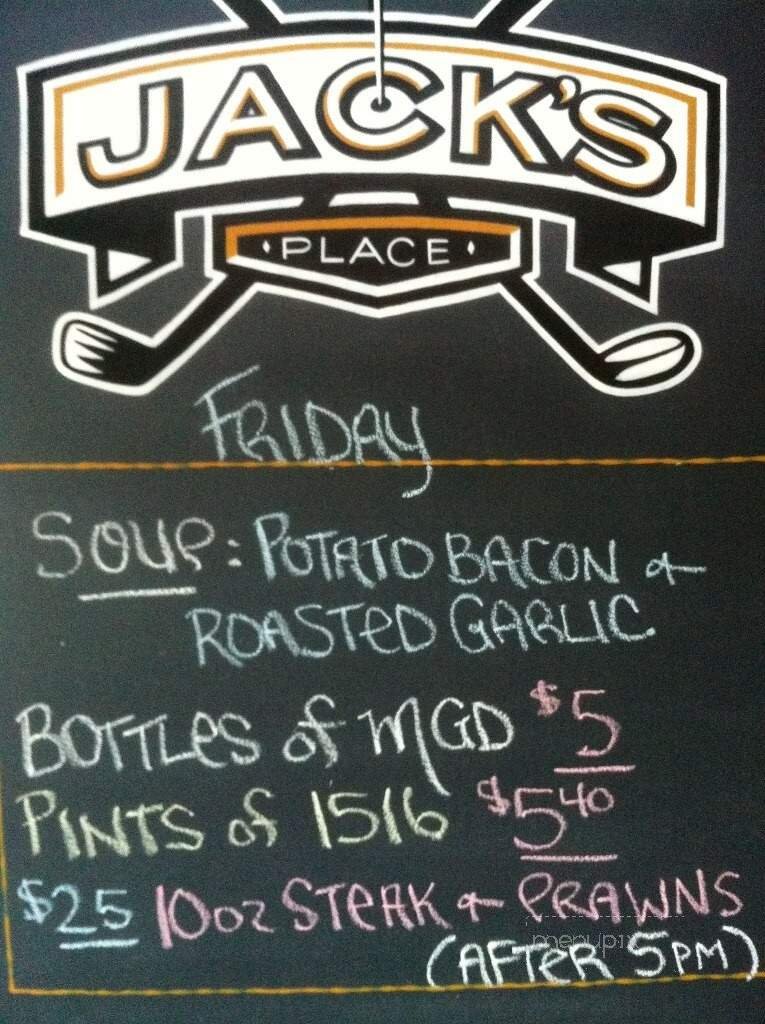 JACK'S
PLACE
FRIDAY
SOUP: POTATO BACON &
ROASTED GARLIC
BOTTLES of MGD $5
PINTS of 1516 $5 40
$25 10oz STEAK & PRAWNS
(AFTER 5PM)
menupix